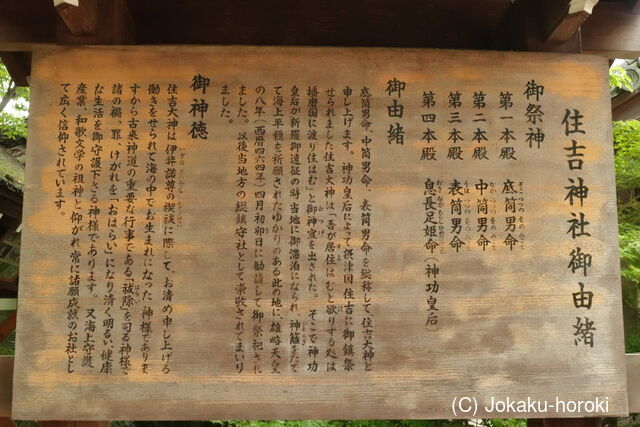 住吉神社御由緒
御祭神
第一本殿 底筒男命
第二本殿 中筒男命
第三本殿 表筒男命
第四本殿 息長足姫命(神功皇后)
御由緒
底筒男命、中筒男命、表筒男命を総称して、住吉大神と
申し上げます。神功皇后によって摂津国住吉に御鎮祭
せられました住吉大神は「吾が居住はむと欲りする処は
播磨国に渡り住はむ」と御神宣を出された。そこで神功
皇后が新羅御遠征の時当地に御滞泊になられ、神籬をたて
て海上平穏を祈願されたゆかりのある此の地に、雄略天皇
の八年(西暦四六四年)四月初卯日に勧請して御祭祀され
ました。以後当地方の総鎮守社として崇敬されてまいり
ました。
御神徳
住吉大神は伊弉諾尊の禊祓に際して、お清め申し上げる
働きをせられて海の中でお生まれになった、神様でありま
すから古来神道の重要な行事である「祓除」を司る神様で
諸の禍、罪、けがれを「おはらい」になり清く明るい健康
な生活を御守護下さる神様であります。又海上守護、
産業、和歌文学の祖神と仰がれ常に諸願成就のお社とし
て広く信仰されています。
(C) Jokaku-horoki